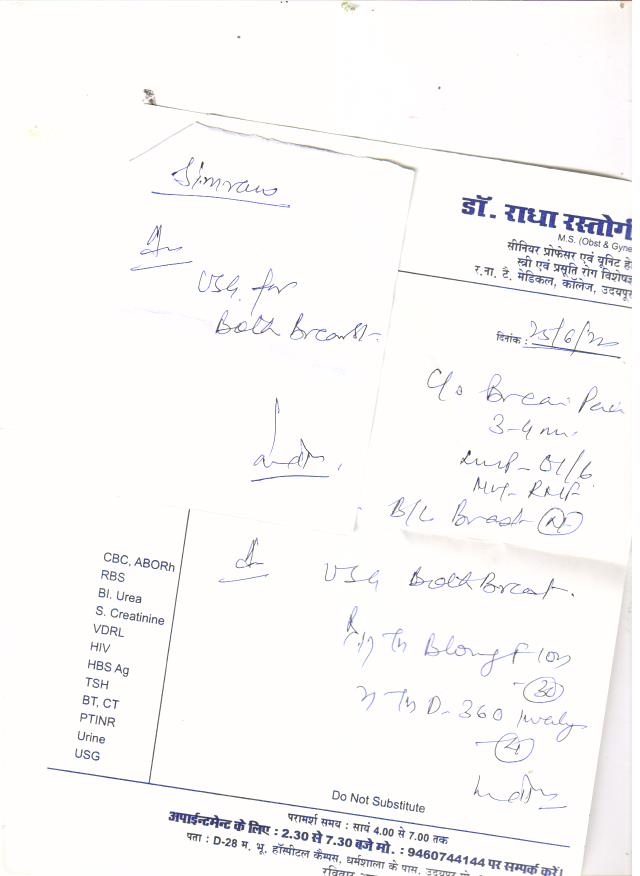 Simran
Adv
USG for
Both Breast
डॉ. राधा रस्तोगी
M.S. (Obst & Gyne
सीनियर प्रोफेसर एवं यूनिट हे
स्त्री एवं प्रसूति रोग विशेषज्ञ
र.ना. टै. मेडिकल, कॉलेज, उदयपुर
दिनांक : 25/6/20
C/o Breast Pain
3-4 m.
LMP - 01/6
B/L Breast - N
Adv USG Both Breast.
CBC, ABORh
RBS
Bl. Urea
S. Creatinine
VDRL
HIV
HBS Ag
TSH
BT, CT
PTINR
Urine
USG
Blong F 10n
30
D-360
4
Do Not Substitute
परामर्श समय : सायं 4.00 से 7.00 तक
अपाईन्टमेन्ट के लिए : 2.30 से 7.30 बजे मो. : 9460744144 पर सम्पर्क करें।
पता : D-28 म. भू. हॉस्पीटल कैम्पस, धर्मशाला के पास, उदयपुर
रविवार